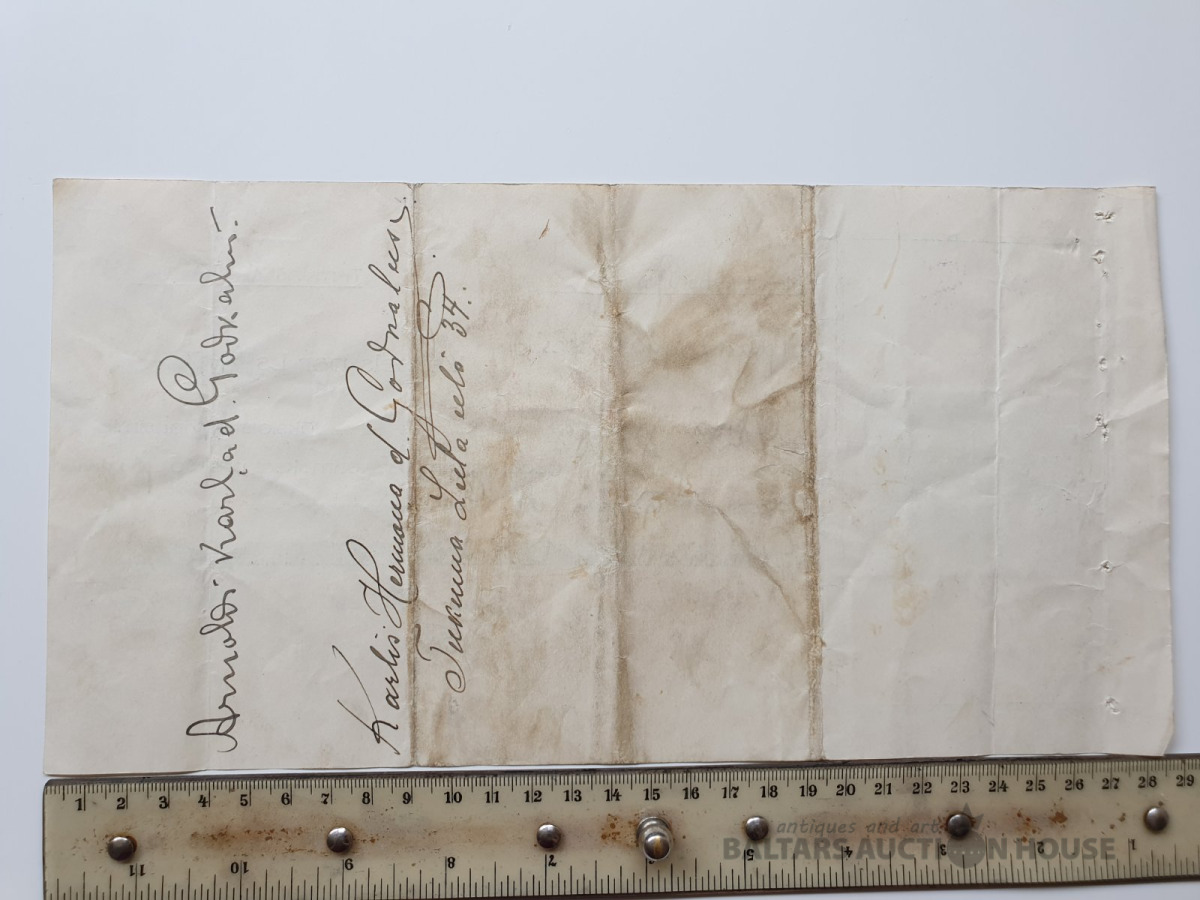 Arnolds Karļa d. Godkalns.
Karlis Hermaņa d. Godkalns.
Tukuma Liela ielā 34.
1 2 3 4 5 6 7 8 9 10 11 12 13 14 15 16 17 18 19 20 21 22 23 24 25 26 27 28 29
11 10 9 8 7 5 4 3 2 1
antiques and art
BALTARS AUCTION HOUSE